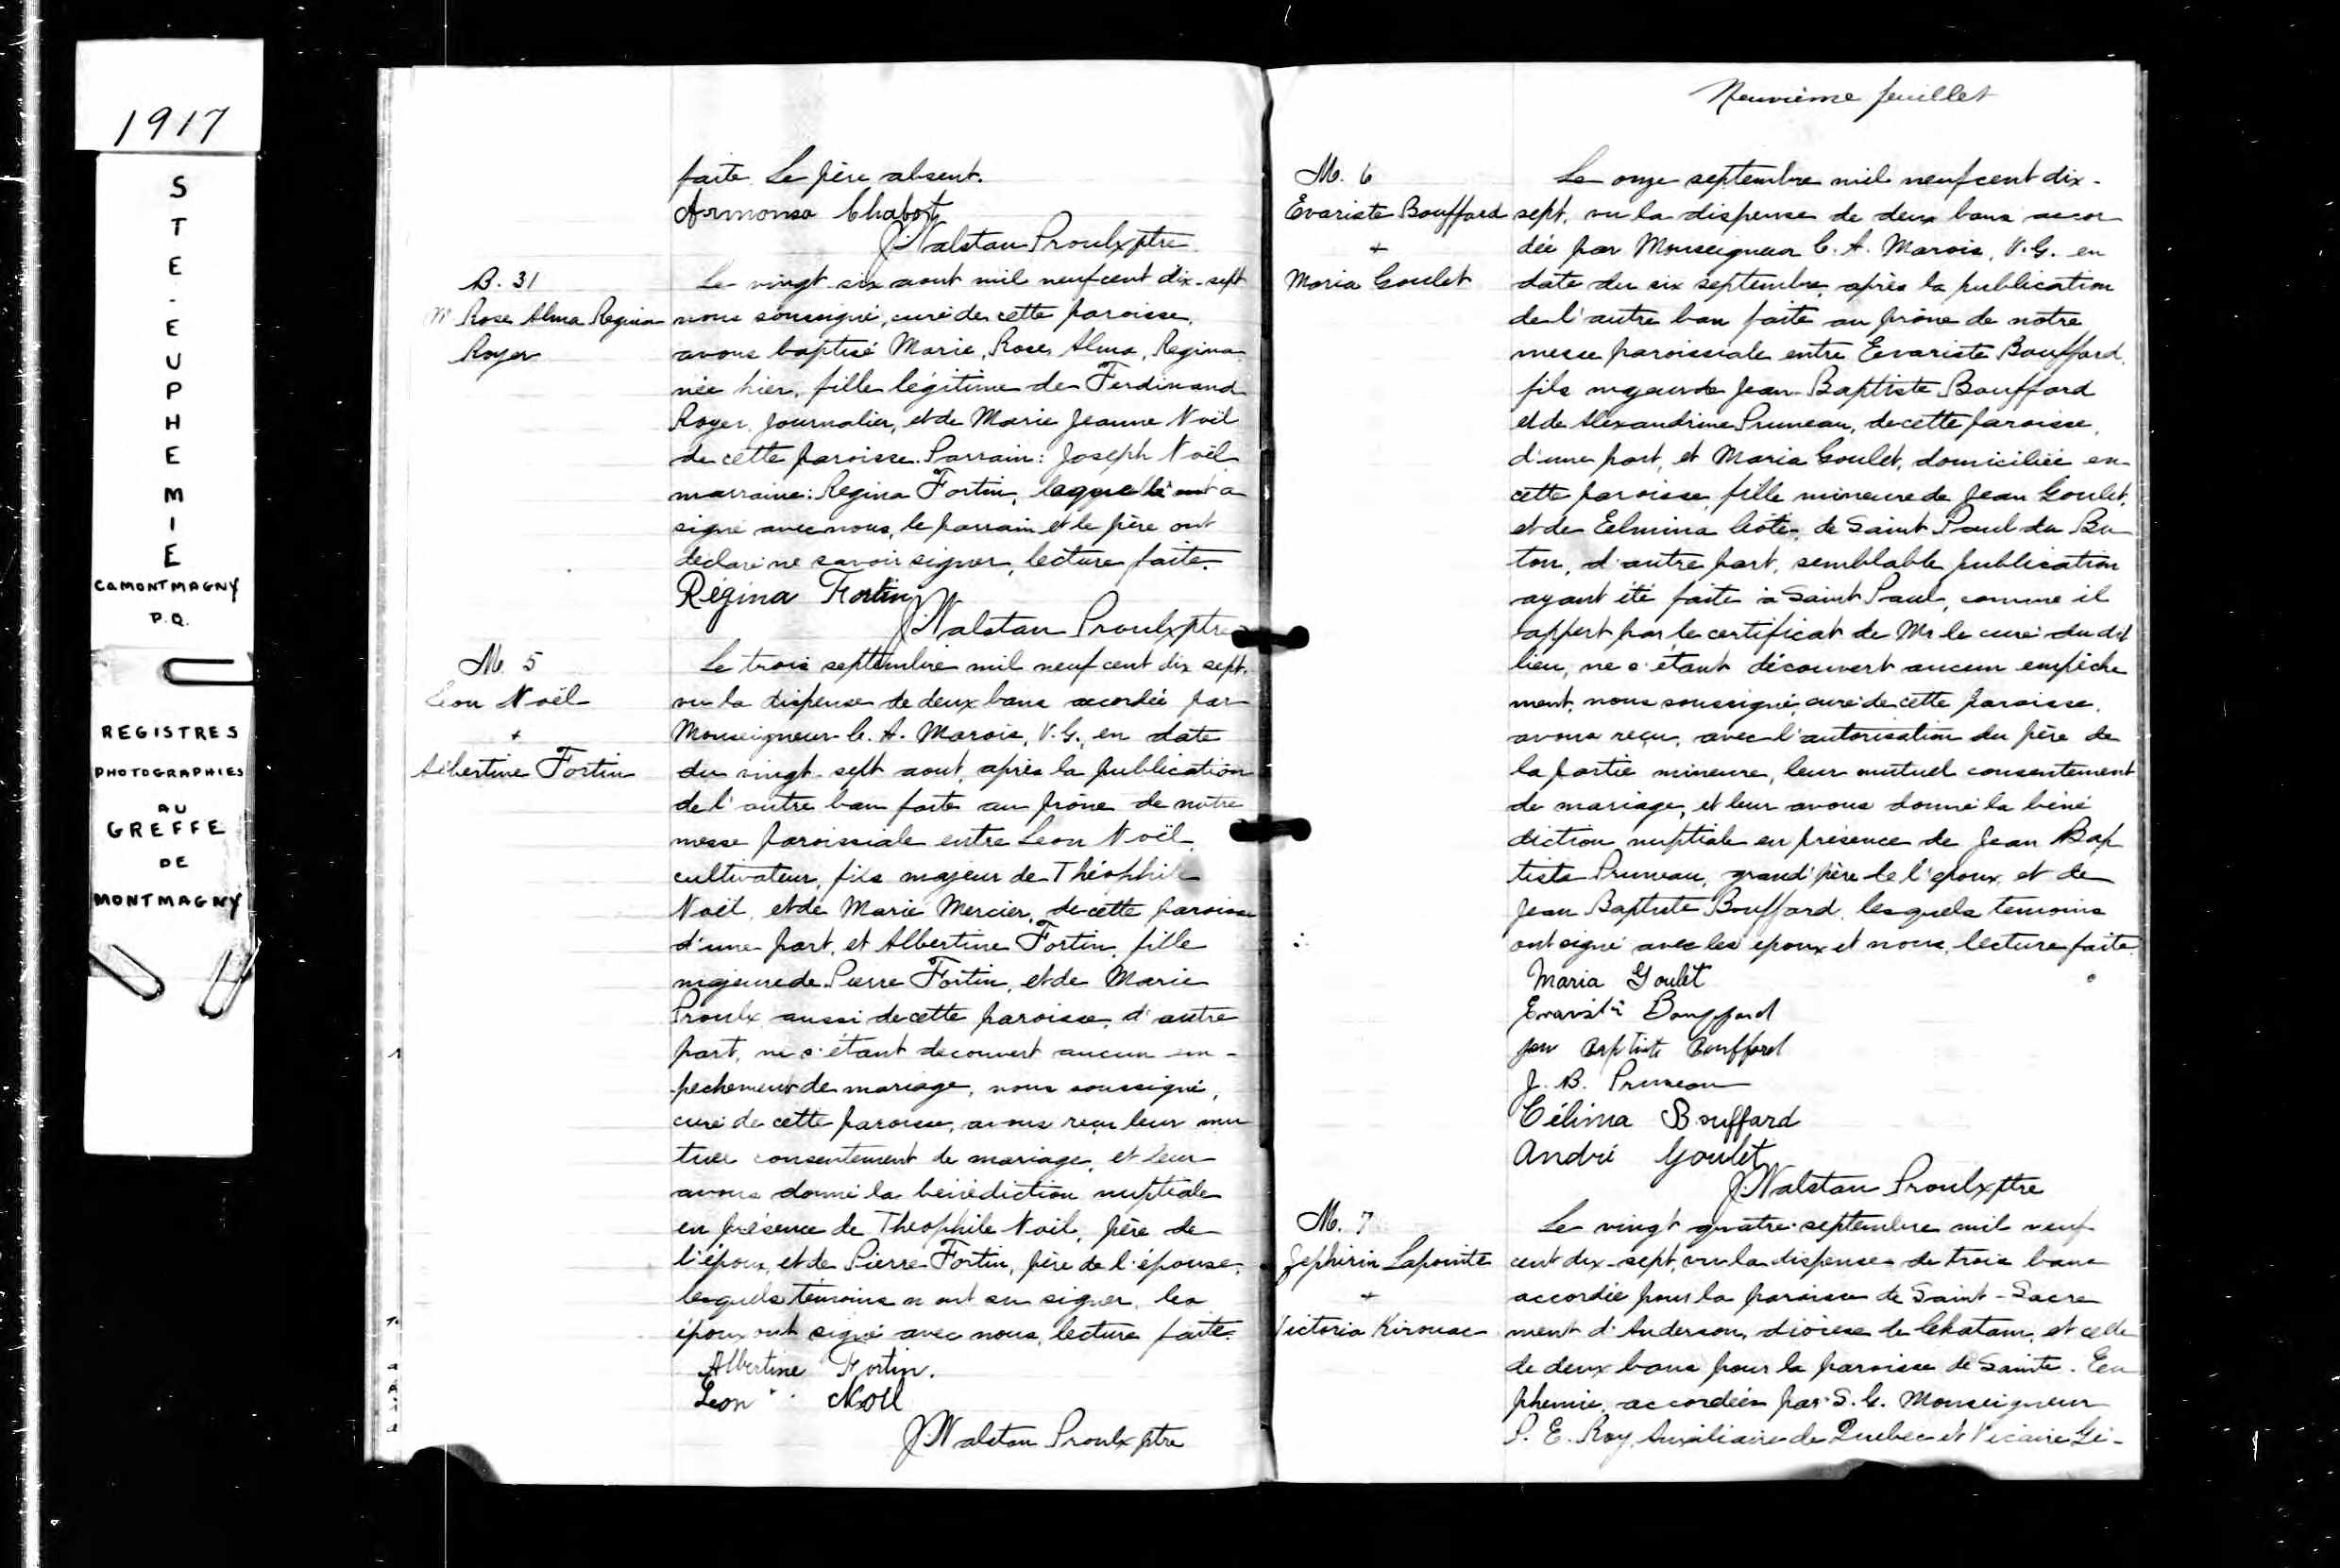 1917
S
T
E
.
E
U
P
H
E
M
I
E
CoMONTMAGNY
P.Q.
REGISTRES
PHOTOGRAPHIES
AU
GREFFE
DE
MONTMAGNY
faite. Le père absent.
Armonsa Chabot
J. Walstan Proulx ptre
B. 31
M Rose Alma Regina
Royer
Le vingt-six aout mil neuf cent dix-sept
nous soussigné, curé de cette paroisse,
avons baptisé Marie, Rose, Alma, Regina
née hier, fille légitime de Ferdinand
Royer, journalier, et de Marie Jeanne Noël
de cette paroisse. Parrain: Joseph Noël
marraine: Regina Fortin, laquelle a
signé avec nous, le parrain et le père ont
déclaré ne savoir signer, lecture faite.
Régina Fortin
J. Walstan Proulx ptre
M. 5
Léon Noël
+
Albertine Fortin
Le trois septembre mil neuf cent dix sept.
vu la dispense de deux bans accordée par
Monseigneur C. A. Marois, V.G., en date
du vingt-sept aout, après la publication
de l'autre ban faite au prône de notre
messe paroissiale entre Léon Noël,
cultivateur, fils majeur de Théophile
Noël, et de Marie Mercier, de cette paroisse
d'une part, et Albertine Fortin, fille
majeure de Pierre Fortin, et de Marie
Proulx aussi de cette paroisse, d'autre
part, ne s'étant decouvert aucun em-
pechement de mariage, nous soussigné,
curé de cette paroisse, avons reçu leur mu
tuel consentement de mariage, et leur
avons donné la bénédiction nuptiale
en présence de Theophile Noël, père de
l'époux, et de Pierre Fortin, père de l'épouse,
lesquels témoins n'ont su signer, les
époux ont signé avec nous, lecture faite.
Albertine Fortin.
Leon Noel
J. Walstan Proulx ptre
Neuvième feuillet
M. 6
Evariste Bouffard
+
Maria Goulet
Le onze septembre mil neuf cent dix-
sept, vu la dispense de deux bans accor
dée par Monseigneur C. A. Marois, V.G. en
date du six septembre, après la publication
de l'autre ban faite au prône de notre
messe paroissiale entre Evariste Bouffard,
fils majeur de Jean-Baptiste Bouffard
et de Alexandrine Pruneau, de cette paroisse,
d'une part, et Maria Goulet, domiciliée en
cette paroisse, fille mineure de Jean Goulet,
et de Elmina Côté, de Saint Paul du Bu
ton, d'autre part, semblable publication
ayant été faite à Saint Paul, comme il
appert par le certificat de Mr le curé du dit
lieu, ne s'étant découvert aucun empêche
ment, nous soussigné, curé de cette paroisse,
avons reçu, avec l'autorisation du père de
la partie mineure, leur mutuel consentement
de mariage, et leur avons donné la béné
diction nuptiale en présence de Jean Bap
tiste Pruneau, grand'père de l'époux, et de
Jean Baptiste Bouffard, lesquels temoins
ont signé avec les époux et nous, lecture faite.
Maria Goulet
Evariste Bouffard
Jean Baptiste Bouffard
J. B. Pruneau
Célina Bouffard
André Goulet
J. Walstan Proulx ptre
M. 7
Zephirin Lapointe
+
Victoria Kirouac
Le vingt quatre septembre mil neuf
cent dix-sept, vu la dispense de trois bans
accordée pour la paroisse de Saint-Sacre
ment d'Anderson, diocèse de Chatam, et celle
de deux bans pour la paroisse de Sainte-Eu
phemie, accordées par S. G. Monseigneur
P. E. Roy, Auxiliaire de Quebec et Vicaire Gé-